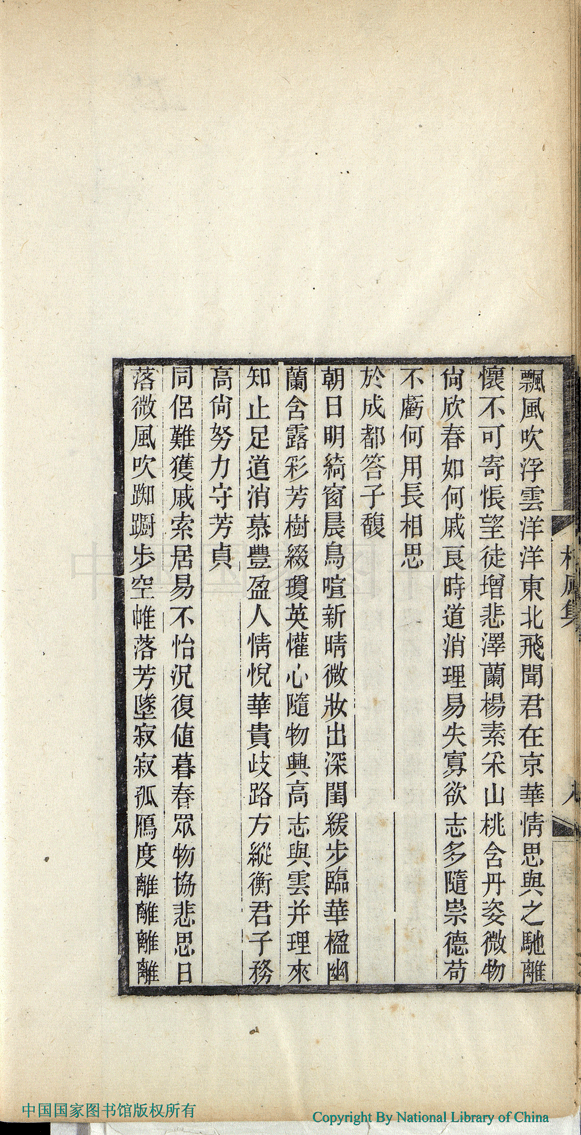 飄風吹浮雲洋洋東北飛聞君在京華情思與之馳離
懷不可寄悵望徒增悲澤蘭楊素采山桃含丹姿微物
尙欣春如何戚良時道消理易失寡欲志多隨崇德苟
不虧何用長相思
於成都答子馥
朝日明綺窗晨鳥喧新晴微妝出深閨緩步臨華楹幽
蘭含露彩芳樹綴瓊英懽心隨物興高志與雲并理來
知止足道消慕豐盈人情悅華貴歧路方縱衡君子務
高尙努力守芳貞
同侶難獲戚索居易不怡況復値暮春眾物協悲思日
落微風吹踟躕步空帷落芳墜寂寂孤鴈度離離離離
集
九
中国国家图书馆版权所有
Copyright By National Library of China